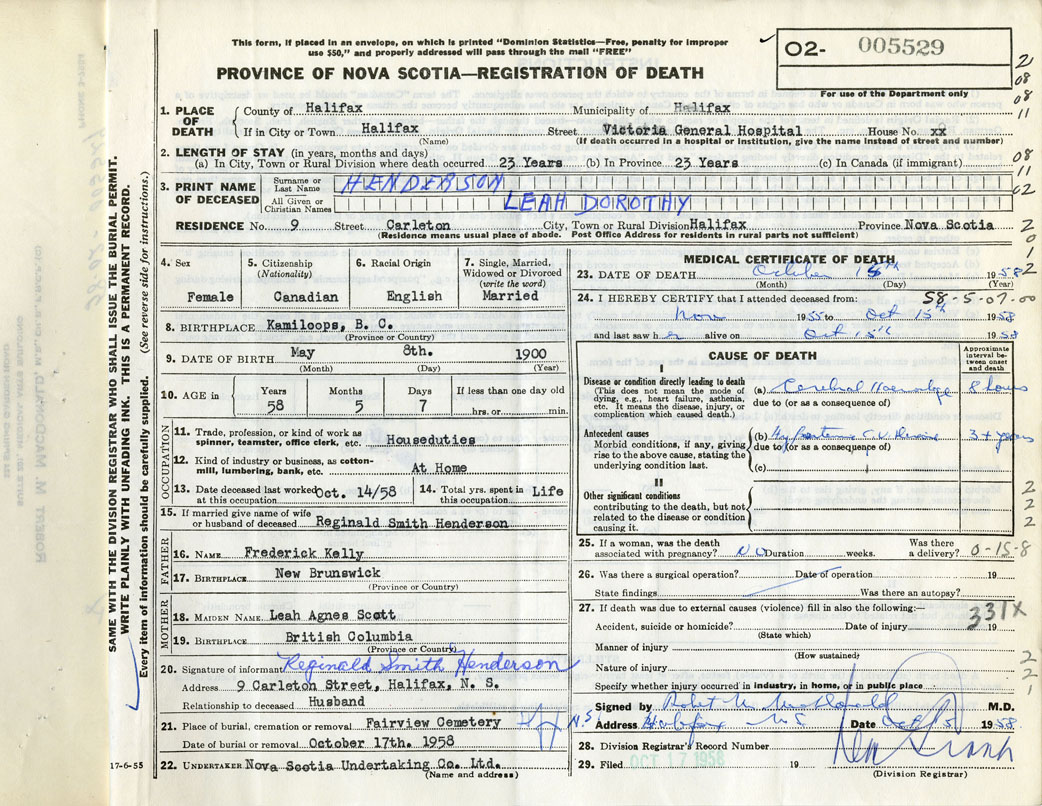 This form, if placed in an envelope, on which is printed "Dominion Statistics—Free, penalty for improper
use $50," and properly addressed will pass through the mail "FREE"
PROVINCE OF NOVA SCOTIA—REGISTRATION OF DEATH
O2- 005529
For use of the Department only
1. PLACE OF DEATH
County of Halifax Municipality of Halifax
If in City or Town Halifax Street Victoria General Hospital House No. xx
(Name) (If death occurred in a hospital or institution, give the name instead of street and number)
2. LENGTH OF STAY (in years, months and days)
(a) In City, Town or Rural Division where death occurred 23 Years (b) In Province 23 Years (c) In Canada (if immigrant)
3. PRINT NAME OF DECEASED
Surname or Last Name HENDERSON
All Given or Christian Names LEAH DOROTHY
RESIDENCE No. 9 Street Carleton City, Town or Rural Division Halifax Province Nova Scotia
(Residence means usual place of abode. Post Office Address for residents in rural parts not sufficient)
4. Sex
Female
5. Citizenship
(Nationality)
Canadian
6. Racial Origin
English
7. Single, Married,
Widowed or Divorced
(write the word)
Married
8. BIRTHPLACE Kamiloops, B. C.
(Province or Country)
9. DATE OF BIRTH May 8th. 1900
(Month) (Day) (Year)
10. AGE in
Years Months Days If less than one day old
58 5 7 hrs. or min.
OCCUPATION
11. Trade, profession, or kind of work as
spinner, teamster, office clerk, etc. Houseduties
12. Kind of industry or business, as cotton-
mill, lumbering, bank, etc. At Home
13. Date deceased last worked Oct. 14/58
at this occupation
14. Total yrs. spent in
this occupation Life
15. If married give name of wife
or husband of deceased Reginald Smith Henderson
FATHER
16. NAME Frederick Kelly
17. BIRTHPLACE New Brunswick
(Province or Country)
MOTHER
18. MAIDEN NAME Leah Agnes Scott
19. BIRTHPLACE British Columbia
(Province or Country)
20. Signature of informant Reginald Smith Henderson
Address 9 Carleton Street, Halifax, N. S.
Relationship to deceased Husband
21. Place of burial, cremation or removal Fairview Cemetery Hfx N.S
Date of burial or removal October 17th. 1958
22. UNDERTAKER Nova Scotia Undertaking Co. Ltd.
(Name and address)
17-6-55
SAME WITH THE DIVISION REGISTRAR WHO SHALL ISSUE THE BURIAL PERMIT.
WRITE PLAINLY WITH UNFADING INK. THIS IS A PERMANENT RECORD.
Every item of information should be carefully supplied. (See reverse side for instructions.)
MEDICAL CERTIFICATE OF DEATH
23. DATE OF DEATH October 15th 1958
(Month) (Day) (Year)
24. I HEREBY CERTIFY that I attended deceased from: 58-5-07-00
Nov 1955 to Oct 15th 1958
and last saw her alive on Oct 15th 1958
CAUSE OF DEATH
Approximate
interval between onset
and death
I
Disease or condition directly leading to death
(This does not mean the mode of
dying, e.g., heart failure, asthenia,
etc. It means the disease, injury, or
complication which caused death.)
(a) Cerebral Haemorrhage 8 hours
due to (or as a consequence of)
Antecedent causes
Morbid conditions, if any, giving
rise to the above cause, stating the
underlying condition last.
(b) Hypertensive C.V. Disease 3+ years
due to (or as a consequence of)
(c)
II
Other significant conditions
contributing to the death, but not
related to the disease or condition
causing it.
25. If a woman, was the death
associated with pregnancy? NO Duration weeks. Was there
a delivery? 0-15-8
26. Was there a surgical operation? Date of operation 19
State findings Was there an autopsy?
27. If death was due to external causes (violence) fill in also the following:—
331X
Accident, suicide or homicide? Date of injury 19
(State which)
Manner of injury
(How sustained)
Nature of injury
Specify whether injury occurred in industry, in home, or in public place
Signed by Robert M MacDonald M.D.
Address Halifax N S Date Oct 15 1958
28. Division Registrar's Record Number
29. Filed OCT 17 1958 19
(Division Registrar)
2
08
08
11
08
11
02
2
0
1
2
2
2
2
2
2
1
ROBERT M. MacDONALD, M.B., CH.B., F.R.C.P. (C)